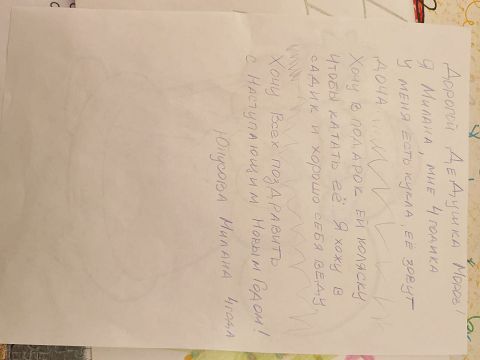 Дорогой Дедушка Мороз!
Я Милана, мне 4 годика
У меня есть кукла, её зовут
Доча.
Хочу в подарок ей коляску
чтобы катать её. Я хожу в
садик и хорошо себя веду
Хочу всех поздравить
с наступающим Новым Годом!
Милана 4 года